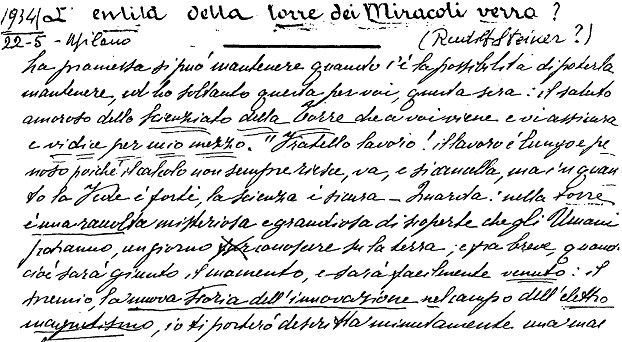 1934 L'entità della torre dei Miracoli verrà?
22-5 - Milano (Rudolf Steiner?)
La promessa si può mantenere quando c'è la possibilità di poterla
mantenere, ed ho soltanto questa per voi, questa sera: il saluto
amoroso dello Scienziato della Torre che a voi viene e vi assicura
e vi dice per mio mezzo. "Fratello lavoro! il lavoro è lungo e pe-
noso poiché il calcolo non sempre riesce, va, e si annulla, ma in quan-
to la Fede è forte, la scienza è sicura - Guarda: nella torre
è una raccolta misteriosa e grandiosa di scoperte che gli Umani
potranno, un giorno conoscere su la terra; e fra breve, quando
cioè sarà giunto il momento, e sarà facilmente venuto: il
premio, la nuova storia dell'innovazione nel campo dell'elettro
magnetismo, io ti porterò descritta minutamente una mac